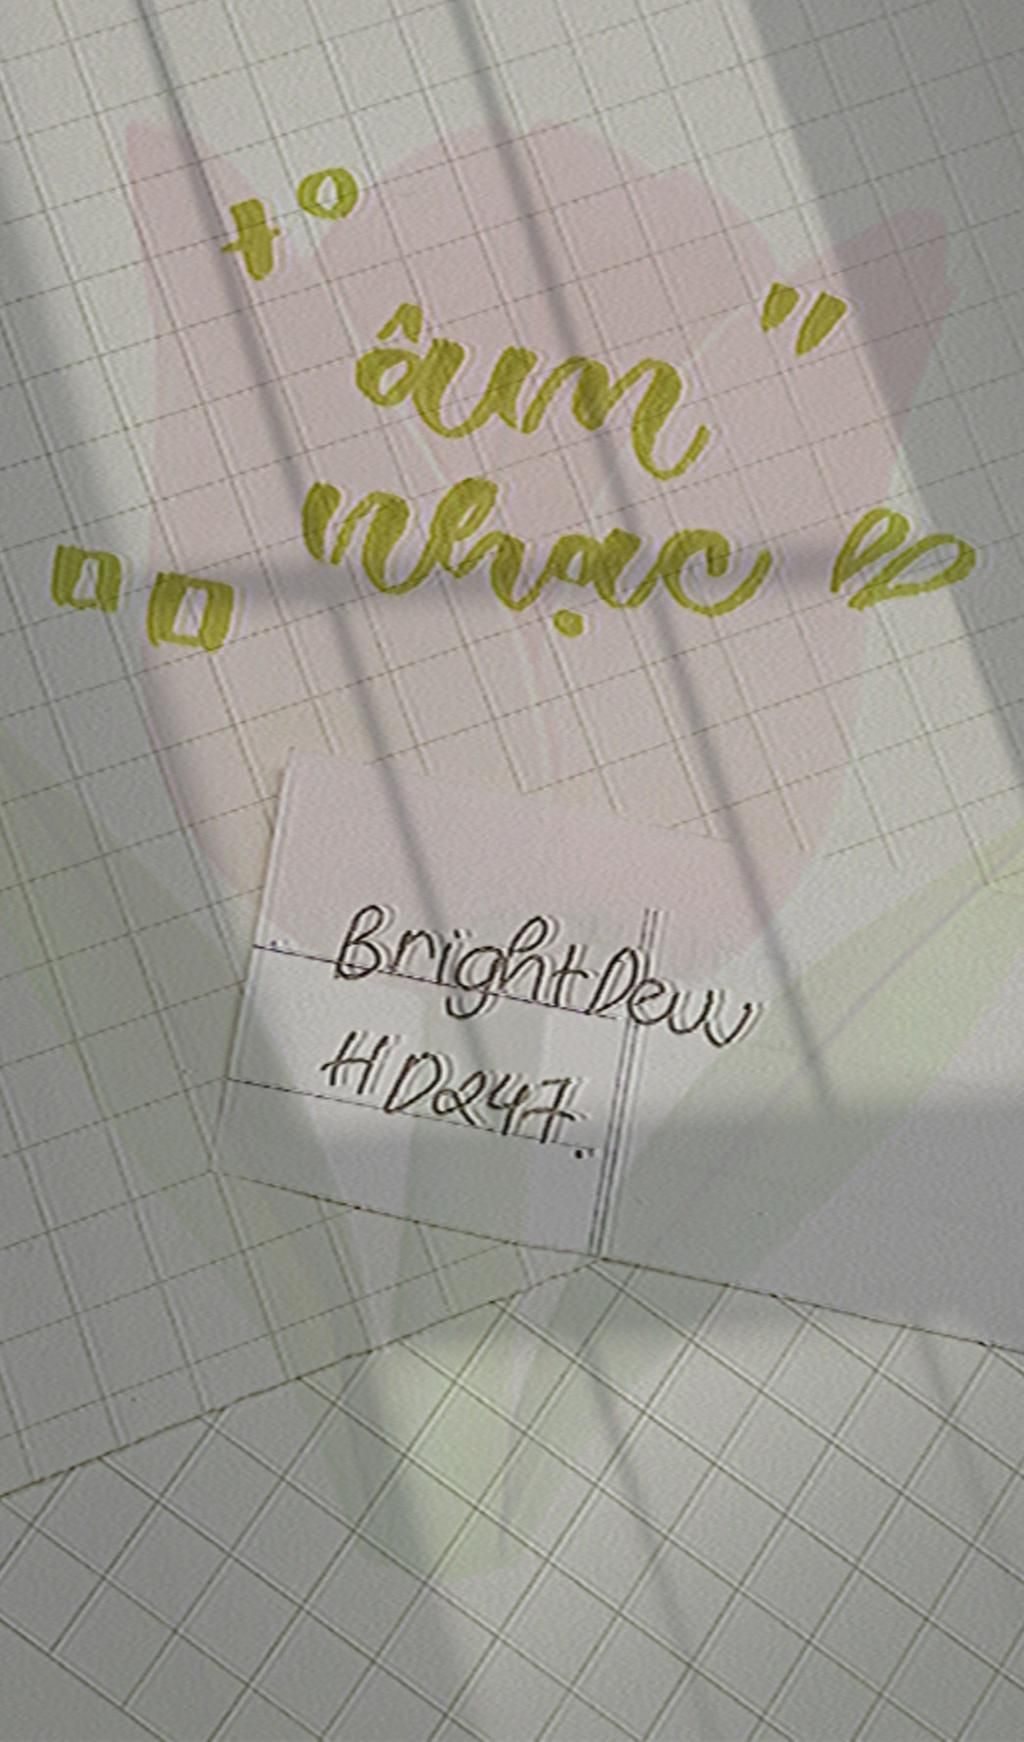 âm
nhạc
BrightDew
HD247.